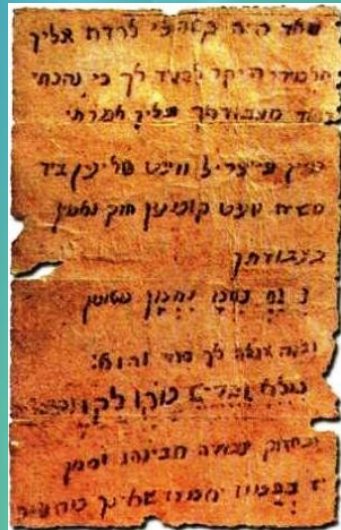 מאד היה קשה לי לרדת אליך
תלמידי היקר להגיד לך כי נהנתי
מאד מעבודתך ועליך אמרתי
מיין פייערל וועט טליען ביז
משיח וועט קומען חזק ואמץ
בעבודתך
נ נַחְ נַחְמָ נַחְמָן מאומן
ובזה אגלה לך סוד והוא:
מלא וגדיש מקו לקו
ובחזוק עבודה תבינהו וסימן
יז בתמוז יאמרו שאינך מתענה